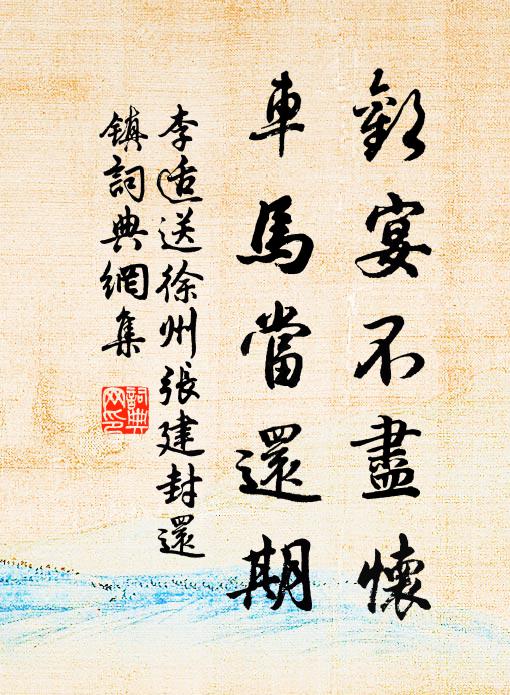 歡宴不盡懷
車馬當還期
李适送徐州張建封還
鎮詞典網集
詞典
网印